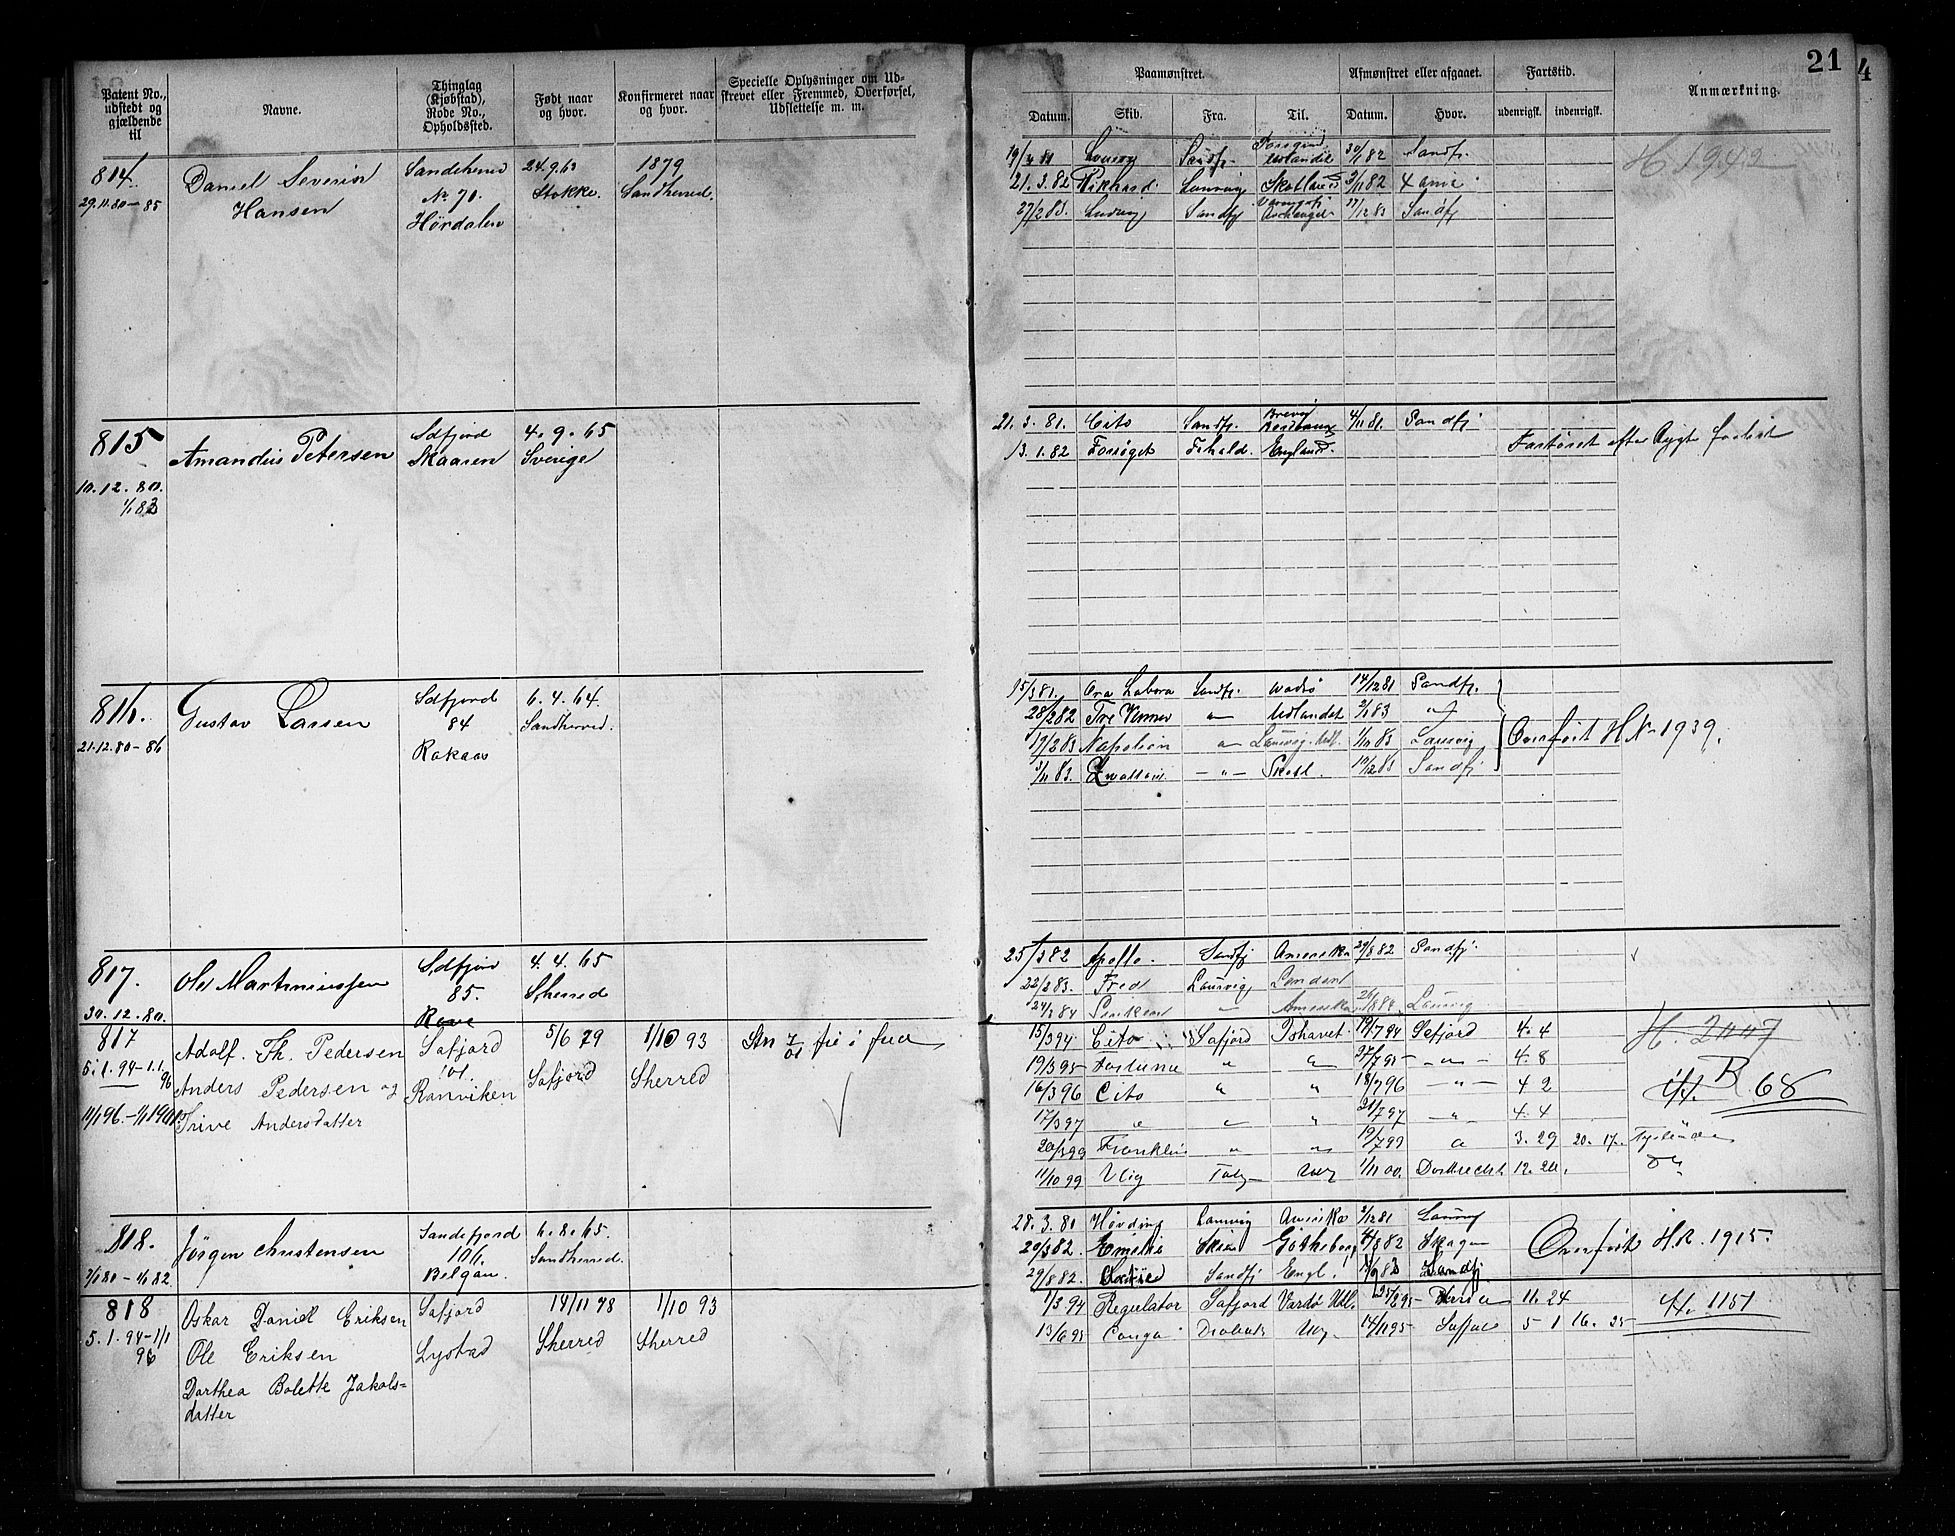 21
4
Patent No., udstedt og gjældende til
Navne.
Thinglag (Kjøbstad), Rode No., Opholdssted.
Født naar og hvor.
Konfirmeret naar og hvor.
Specielle Oplysninger om Udskrevet eller Fremmed, Overførsel, Udslettelse m. m.
Paamønstret.
Afmønstret eller afgaaet.
Fartstid.
Anmærkning.
Datum.
Skib.
Fra.
Til.
Datum.
Hvor.
udenrigsk.
indenrigsk.
814.
29.11.80-85
Daniel Severin
Hansen
Sandeherred
No 70.
Hørdalen
24.9.63
Stokke.
1879
Sandherred.
Sandfj.
30/1 82 Sandfj.
H. 1943
21.3.82 Rikhard Laurvig Skotland
27/2 83. Ludvig Sandfj Archangel 17/12 83 Sandfj
815
10.12.80.
1/1 83
Amandus Petersen
Sdfjord
Skaaren
4.9.65
Sverige
21.3.81. Cito Sandfj. Brevig 4/11 81. Sandfj
13.1.82 Forsøget Frhald. England.
Fartøiet efter Rygte forlist
816.
21.12.80-86
Gustav Larsen
Sdfjord
84
Rakaas
6.4.64.
Sandherred.
15/3 81. Ora Labora Sandfj. Vadsø 14/12 81 Sandfj.
28/2 82 Tre Venner " Udlandet 2/1 83 "
19/2 83 Napoleon " Laurvig Udl. 1/10 83 Laurvig
3/11 83. - " - Skotl. 19/12 83 Sandfj
Overført H No 1939.
817.
30.12.80.
Ole Martiniussen
Sdfjord
85.
Rave
4.4.65
Sherred
25/3 82 Apollo. Sandfj Amerika 29/8 82 Sandfj.
22/2 83. Fred Laurvig London
24/3 84 " Amerika 26/8 84 Laurvig
817
5.1.94-1.1.96
11/1 96.-1/1 1901.
Adolf. Th. Pedersen
Anders Pedersen og
Trine Andersdatter
Safjord
101.
Ranviken
5/6 79
Safjord
1/10 93
Sherred
15/3 94 Cito Safjord Ishavet 19/7 94 Sefjord 4.4
19/3 95 Fortuna " " 27/7 95 - " - 4.8
16/3 96 Cito " " 18/7 96 - " - 4 2
17/3 97 " " " 21/7 97 - " 4.4
20/3 99 Franklin " " 19/7 99 " 3.29 20.17.
11/10 99 Viig 1/11 00. Dordrecht 12.20.
H. 2007
H. B 68
818.
7/1 80-1/1 82
Jørgen Christensen
Sandefjord
106.
Belgau.
6.8.65.
Sandherred.
28.3.80 Høvding Laurvig Amerika 2/12 81 Laurvig
29/3 82. Emelie Skien Gøtheborg 4/8 82 Skagen
29/8 82. Sandfj Engl. Sandfj
Overført H.No. 1915.
818
5.1.94-1/1
96
Oskar Daniel Eriksen
Ole Eriksen
Dorthea Bolette Jakobs=
datter
Safjord
Lystad
14/11 78
Sherred
1/10 93
Sherred
1/3 94 Regulator Safjord Vardø Udl. 11.24
13/6 95 Conga Udg 14/11 95 5 1 16.25
H. 1151